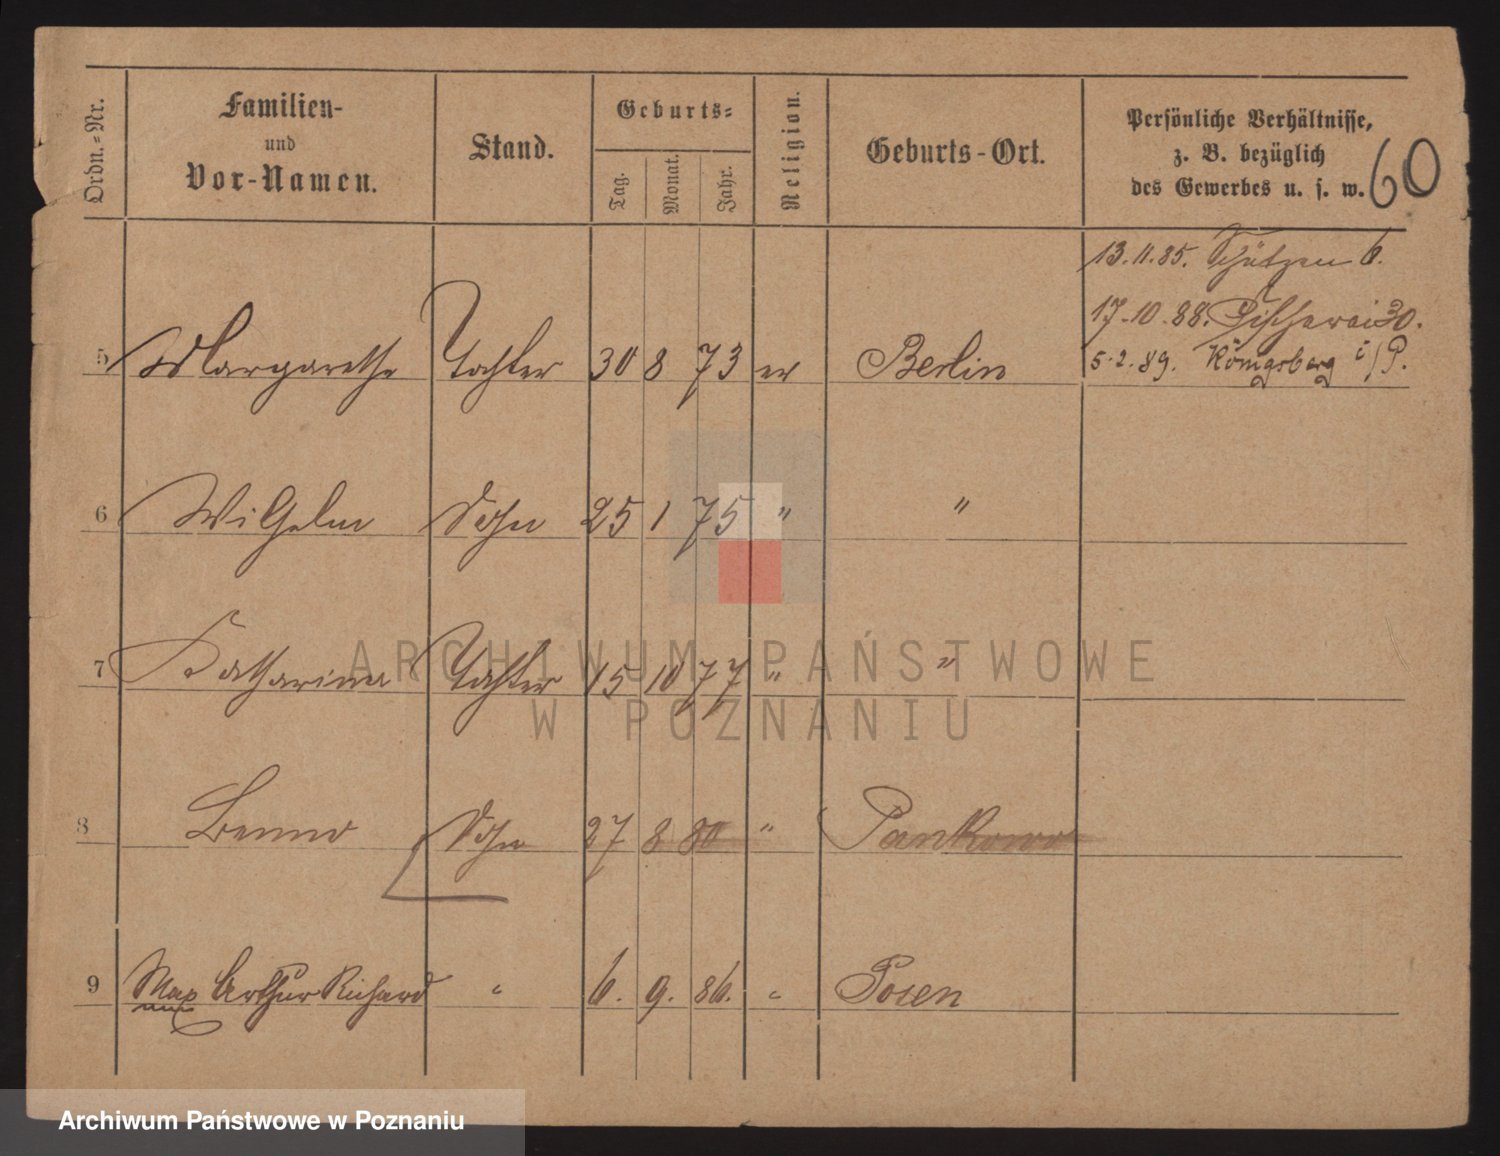 Ordn.-Nr.
Familien-
und
Vor-Namen.
Stand.
Geburts-
Tag.
Monat.
Jahr.
Religion.
Geburts-Ort.
Persönliche Verhältnisse,
z. B. bezüglich
des Gewerbes u. s. w.
60
13.11.85. Schützen 6.
17.10.88. Fischerei 30.
5 Margarethe Tochter 30 8 73 ev Berlin 5.2.89. Königsberg i/P.
6 Wilhelm Sohn 25 1 75 " "
7 Katharina Tochter 15 10 77 " "
8 Benno Sohn 27 8 80 " Pankow
9 Max Arthur Richard " 6. 9. 86. " Posen
ARCHIWUM PAŃSTWOWE
W POZNANIU
Archiwum Państwowe w Poznaniu